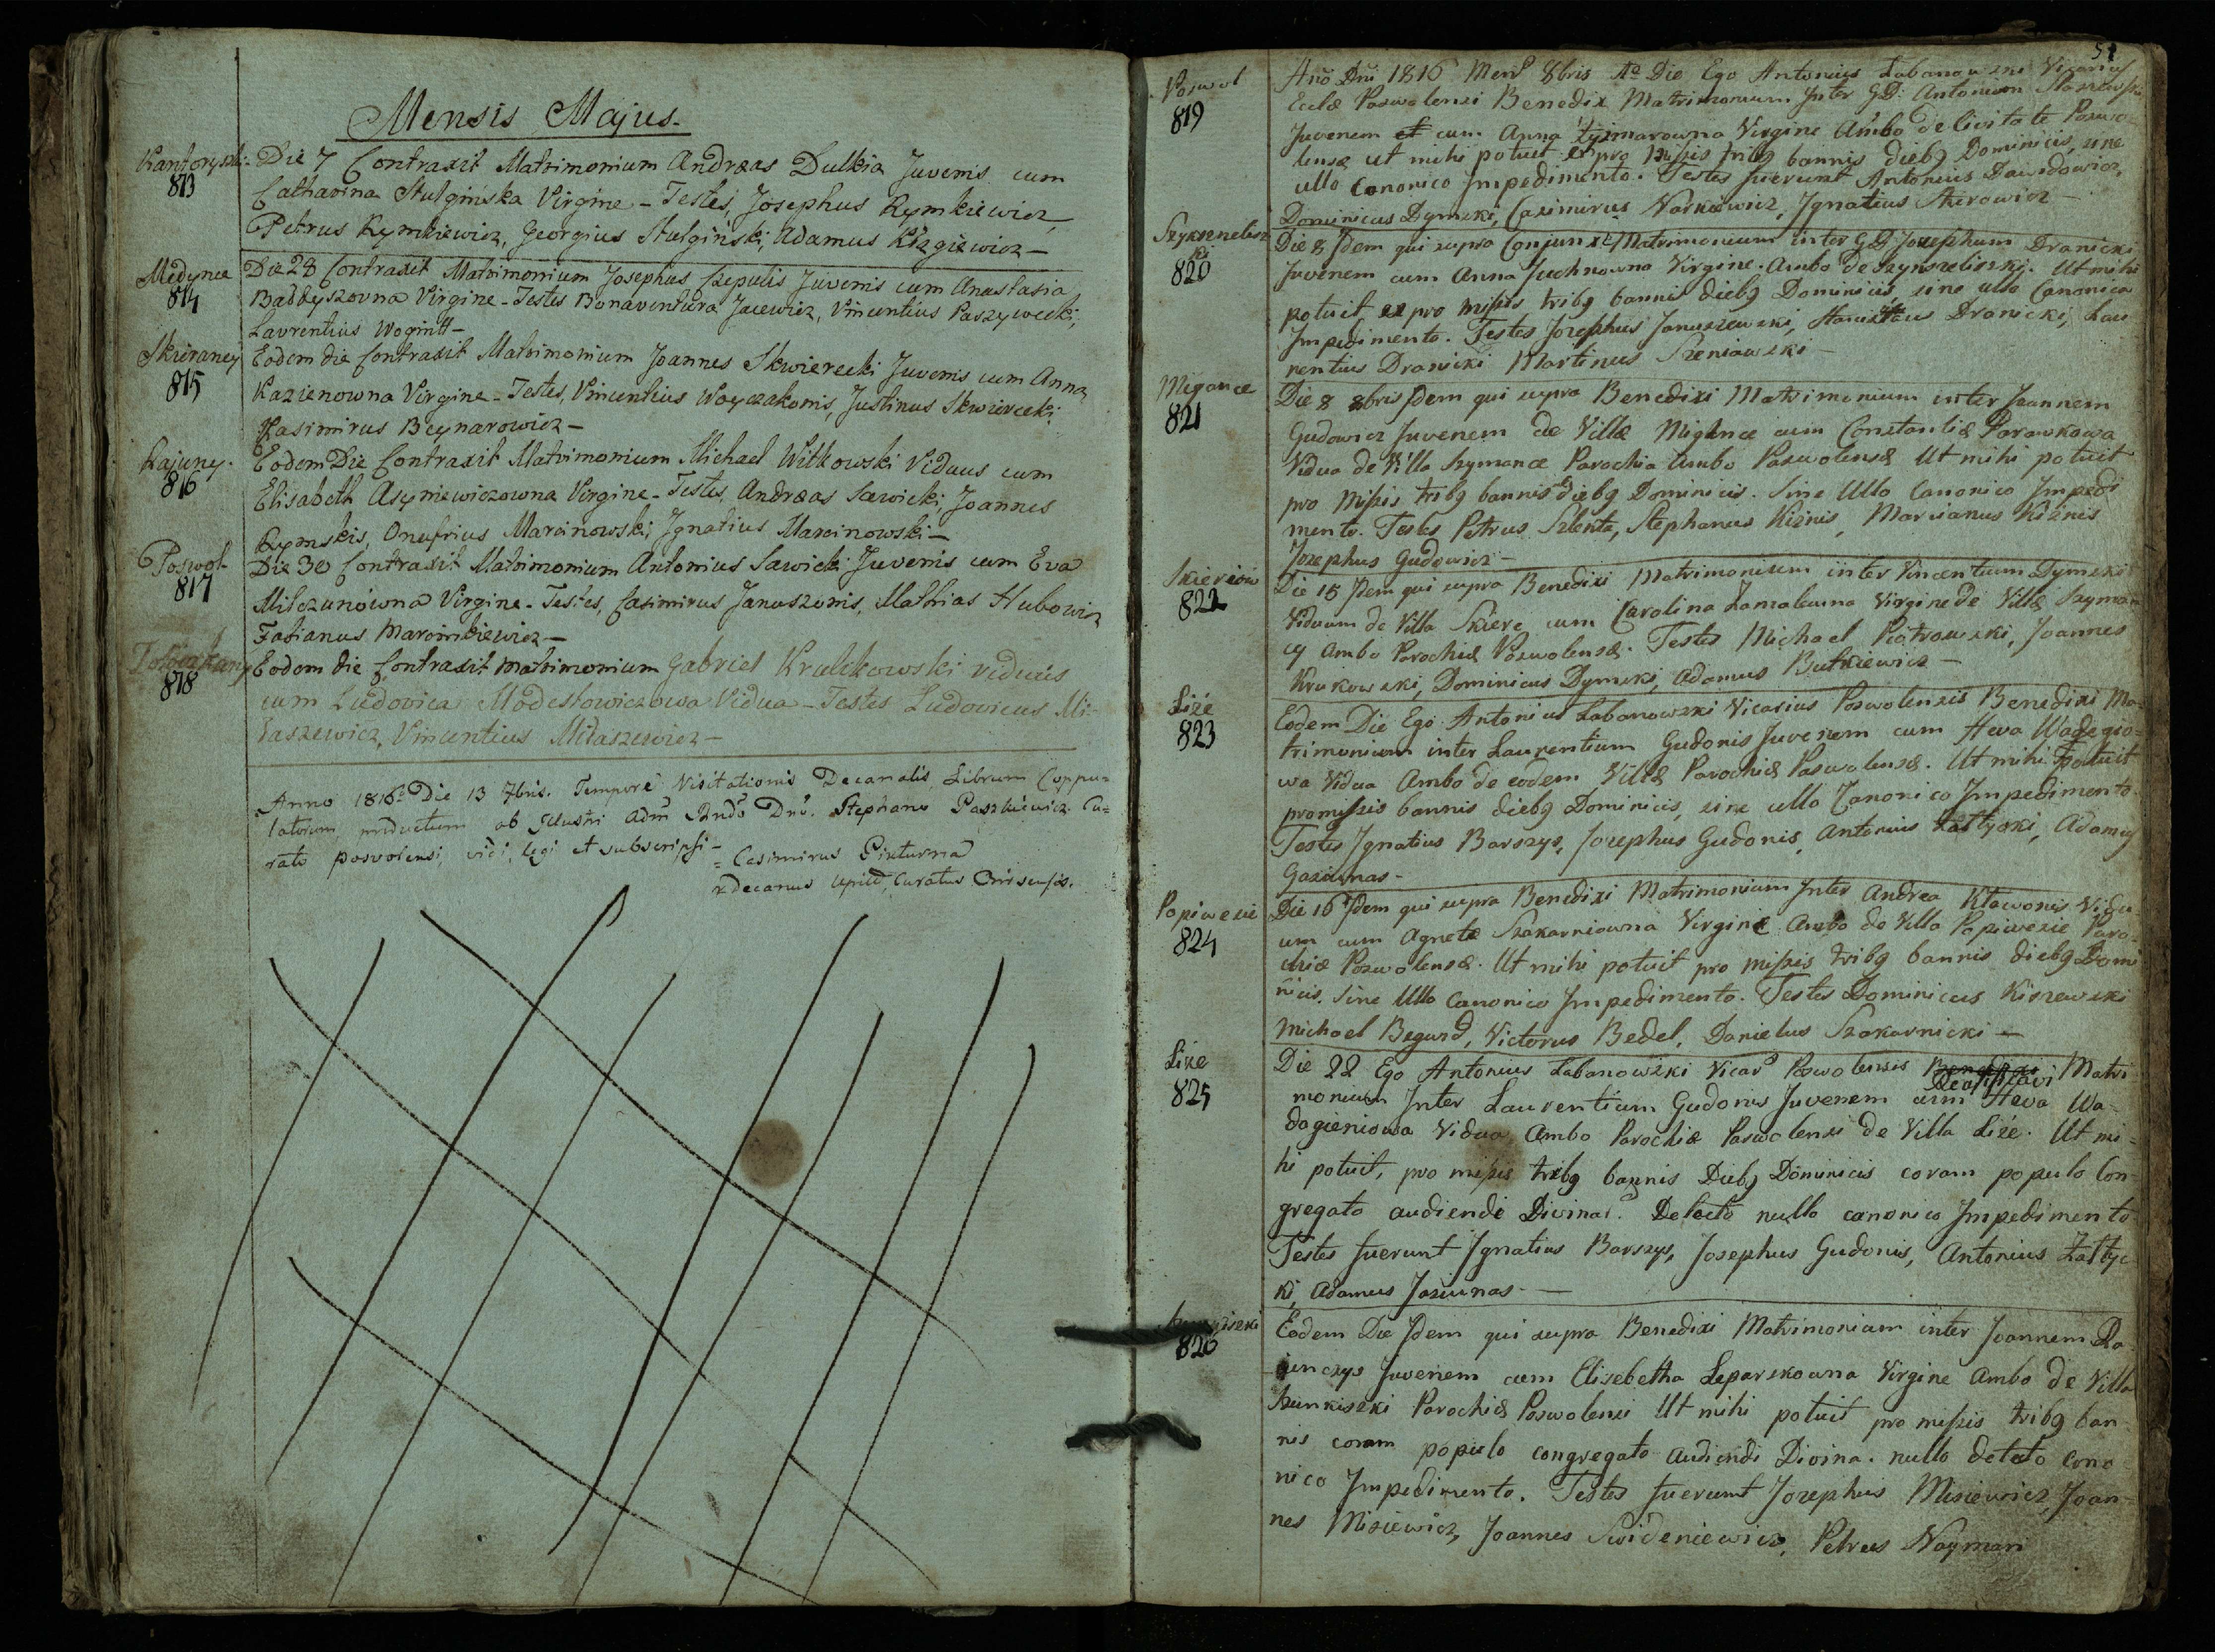 Mensis Majus.
Kantoryszki.
813
Die 7 Contraxit Matrimonium Andræas Dulkia Juvenis cum
Catharina Stulgińska Virgine – Testes, Josephus Rymkiewicz,
Petrus Rymkiewicz, Georgius Stulgiński, Adamus
Medynce
814
Die 28 Contraxit Matrimonium Josephus Czepulis Juvenis cum Anastasia
Virgine – Testes Bonaventura Jacewicz, Vincentius Paszywecki,
Laurentius Wogintt –
Skriraney
815
Eodem die Contraxit Matrimonium Joannes Skwierecki Juvenis cum Anna
Kazienowna Virgine – Testes, Vincentius Woyczakonis, Justinus Skwierecki
Kasimirus Beynarowicz –
Kajuny.
816
Eodem Die Contraxit Matrimonium Michael Witkowski Viduus cum
Elisabeth Asyniewiczowna Virgine – Testes, Andræas Sawicki, Joannes
Rymskis, Onufrius Marcinowski, Ignatius Marcinowski –
Poswol
817
Die 30 Contraxit Matrimonium Antonius Sawicki Juvenis cum Eva
Milczunowna Virgine – Testes, Casimirus Januszonis, Mathias Hubowicz
Fabianus Marcinkiewicz –
818
Eodem die Contraxit Matrimonium Gabriel Krulikowski viduus
cum Ludovica Modestowiczowa Vidua – Testes Ludovicus Mi-
łaszewicz, Vincentius Miłaszewicz –
Anno 1816º Die 13 7bris. Tempore Visitationis Decanalis Librum Coppu=
latorum productum ab Illustri Adm Rndo Dno. Stephano Paszkiewicz Cu=
rato posvolensi, vidi, legi et subscripsi –
= Casimirus Pixturna
Decanus Upit, Curatus
Poswol
819
Ano Dni 1816 Mens 8bris Die Ego Antonius Labanowski Vicarius
Eclæ Poswolensi Benedixi Matrimonium Inter G.D. Antonium
Juvenem cum Anna Virgine Ambo de Civitate Poswo-
lensæ ut mihi potuit pro missis tribg bannis diebg Dominicis, sine
ullo Canonico Impedimento. Testes fuerunt Antonius Dawidowicz,
Dominicus Dymski, Casimirus Narkiewicz, Ignatius
820
Die 8 Idem qui supra Conjunxi Matrimonium inter G.D. Josephum Dranicki
Juvenem cum Anna Juchnowna Virgine. Ambo de Szynszeliszki. Ut mihi
potuit, pro missis tribg bannis diebg Dominicis, sine ullo Canonico
Impedimento. Testes Josephus Januszewski, Stanislaus Dranicki, Lau
rentius Dranicki Martinus Szeniawski –
Migance
821
Die 8 8bris Idem qui supra Benedixi Matrimonium inter Joannem
Gudowicz Juvenem de Villa Migance cum Constantia
Vidua de Villa Szymance Parochia Ambo Paswolensæ Ut mihi potuit
pro missis tribg bannis diebg Dominicis. Sine Ullo Canonico Impedi
mento. Testes Petrus Szlekta, Stephanus Kiznis, Marcianus Kiznis
Josephus Gudowicz –
822
Die 15 Idem qui supra Benedixi Matrimonium inter Vincentium Dymski
Viduum de Villa Skiere cum Carolina Virgine de Villa Szyman
cy Ambo Parochiæ Poswolensæ. Testes Michael Piotrowski, Joannes
Krukowski, Dominicus Dymski, Adamus Butkiewicz –
Liże
823
Eodem Die Ego Antonius Labanowski Vicarius Poswolensis Benedixi Ma-
trimonium inter Laurentium Gudonis Juvenem cum Heva Wadegio=
wa Vidua Ambo de eodem Villa Parochiæ Paswolensæ. Ut mihi Potuit
promissis bannis diebg Dominicis, sine ullo Canonico Impedimento
Testes Ignatius Barszys, Josephus Gudonis, Antonius, Adamus
Gaziunas –
Papiwesie
824
Die 16 Idem qui supra Benedixi Matrimonium Inter Andrea Kławonis Vidu-
um cum Agneta Szakarniowna Virgine Ambo de Villa Papiwesie Paro-
chiæ Poswolensæ. Ut mihi potuit pro missis tribg bannis diebg Domi
nicis. Sine Ullo Canonico Impedimento. Testes Dominicus Kiszewski
Michael Begund, Victorus Bedel, Danielus Szakarnicki –
Liże
825
Die 22 Ego Antonius Labanowski Vicars Poswolensis Matri
monium Inter Laurentium Gudonis Juvenem cum Heva Wa-
dagieniowa Vidua Ambo Parochiæ Paswolensi de Villa Liże. Ut mi=
hi potuit, pro missis tribg bannis Diebg Dominicis coram populo Con-
gregato audiendi Divina. Detecto nullo canonico Impedimento
Testes fuerunt Ignatius Barszys, Josephus Gudonis, Antonius Łattyc-
ki, Adamus Jaziunas –
826
Eodem Die Idem qui supra Benedixi Matrimonium inter Joannem Ra-
junczys Juvenem cum Elisebetha Leparskowna Virgine Ambo de Villa
Parochiæ Poswolensi Ut mihi potuit pro missis tribg ban-
nis coram populo congregato audiendi Divina. nullo detecto cano-
nico Impedimento. Testes fuerunt Josephus Misiewicz, Joan-
nes Misiewicz, Joannes Swideniewicz, Petrus Nayman